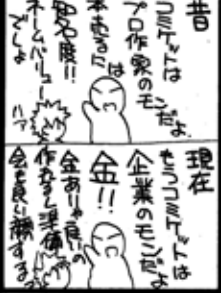 昔
コミケットは
プロ作家のモンだよ
本売るには
知名度!!
ネームバリュー
でしょ
ハァ
現在
もうコミケットは
企業のモンだよ
金!!
金ありゃ良いの
作れるし準備
会も良い顔する